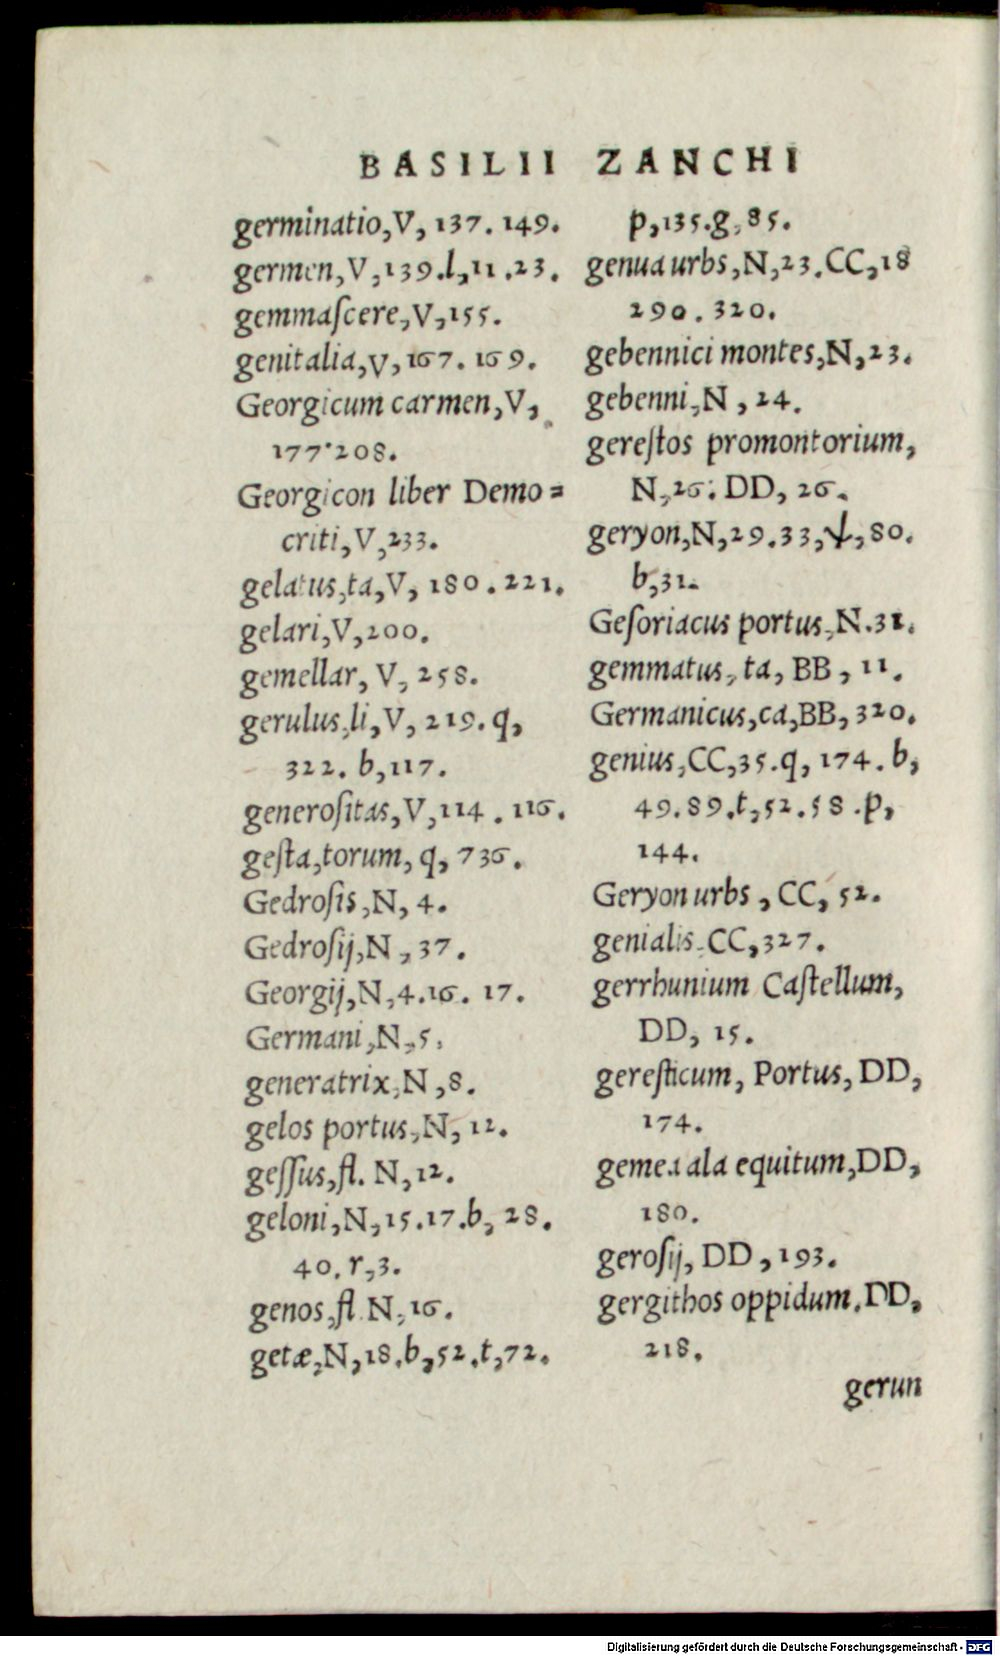 BASILII ZANCHI
germinatio,V, 137. 149.
germen,V,139.l,11.23.
gemmaſcere,V,155.
genitalia,V,167. 169.
Georgicum carmen,V,
177.208.
Georgicon liber Demo=
criti,V,233.
gelatus,ta,V, 180. 221.
gelari,V,200.
gemellar, V, 258.
gerulus,li,V, 219. q,
322. b,117.
generoſitas,V,114. 116.
geſta,torum, q, 736.
Gedroſis,N, 4.
Gedroſij,N, 37.
Georgij,N,4.16. 17.
Germani,N,5.
generatrix,N,8.
gelos portus,N, 12.
geſſus,fl. N,12.
geloni,N,15.17.b, 28.
40. r,3.
genos,fl. N,16.
getæ,N,18.b,52.t,72.
p,135.g,85.
genua urbs,N,23.CC,18
290. 320.
gebennici montes,N,23.
gebenni,N, 24.
gereſtos promontorium,
N,26. DD, 26.
geryon,N,29.33,ψ,80.
b,31.
Geſoriacus portus,N.31.
gemmatus, ta, BB, 11.
Germanicus,ca,BB, 320.
genius,CC,35.q, 174. b,
49.89.t,52.58.p,
144.
Geryon urbs, CC, 52.
genialis CC,327.
gerrhunium Caſtellum,
DD, 15.
gereſticum, Portus, DD,
174.
gemea ala equitum,DD,
180.
geroſij, DD, 193.
gergithos oppidum.DD,
218.
gerun
Digitalisierung gefördert durch die Deutsche Forschungsgemeinschaft - DFG